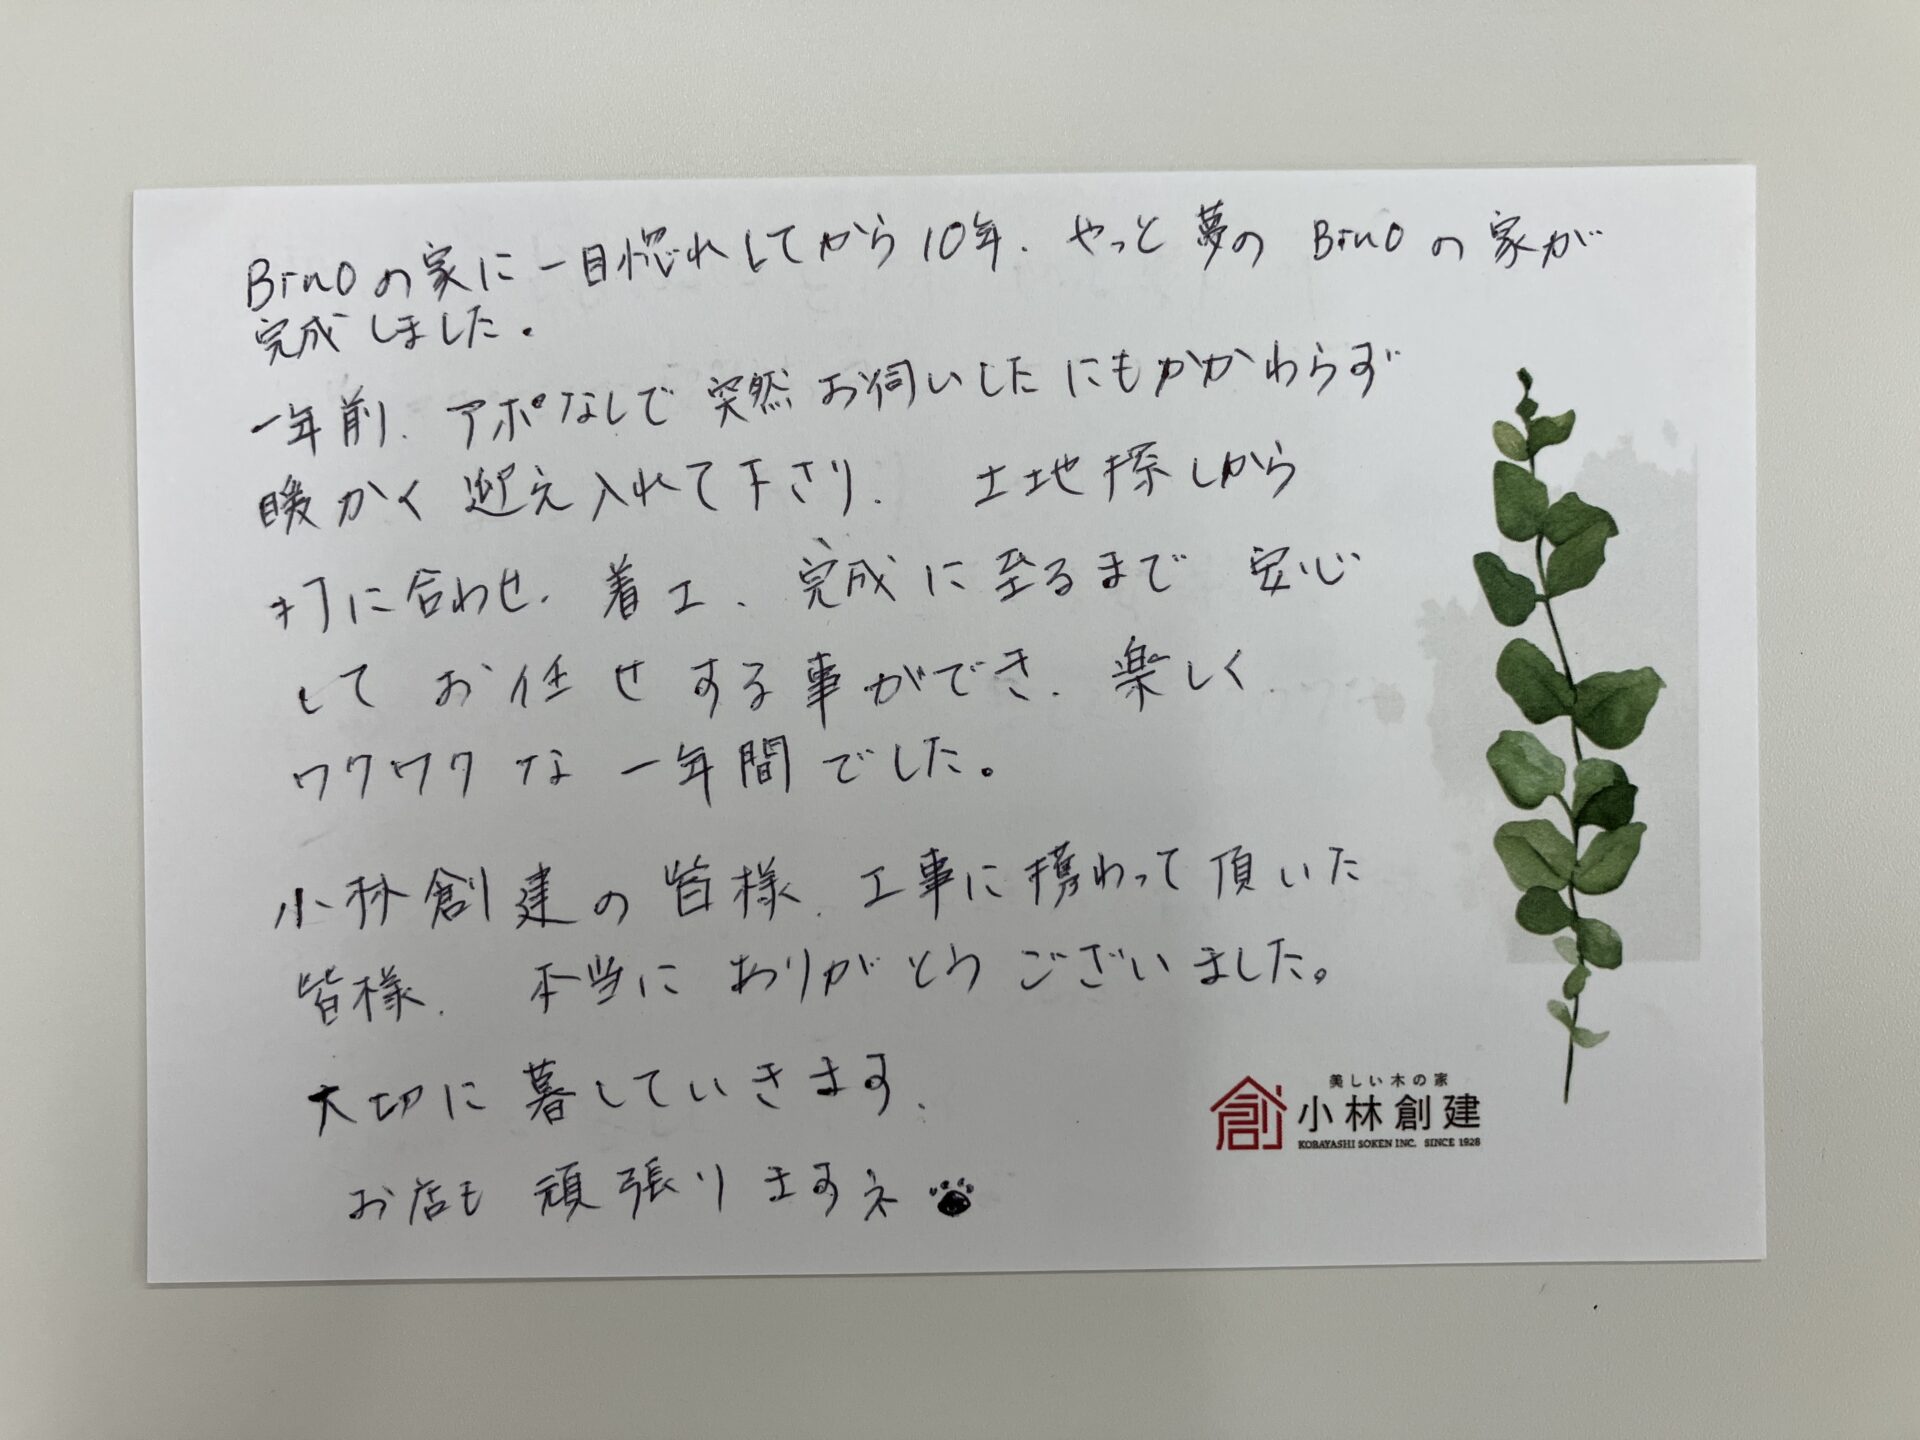 BinOの家に一目惚れしてから10年、やっと夢のBinOの家が
完成しました。
一年前、アポなしで突然お伺いしたにもかかわらず
暖かく迎え入れて下さり、土地探しから
打に合わせ、着工、完成に至るまで安心
してお任せする事ができ、楽しく
ワクワクな一年間でした。
小林創建の皆様、工事に携わって頂いた
皆様、本当にありがとうございました。
大切に暮していきます。
お店も頑張りますネ
美しい木の家
創 小林創建
KOBAYASHI SOKEN INC. SINCE 1928